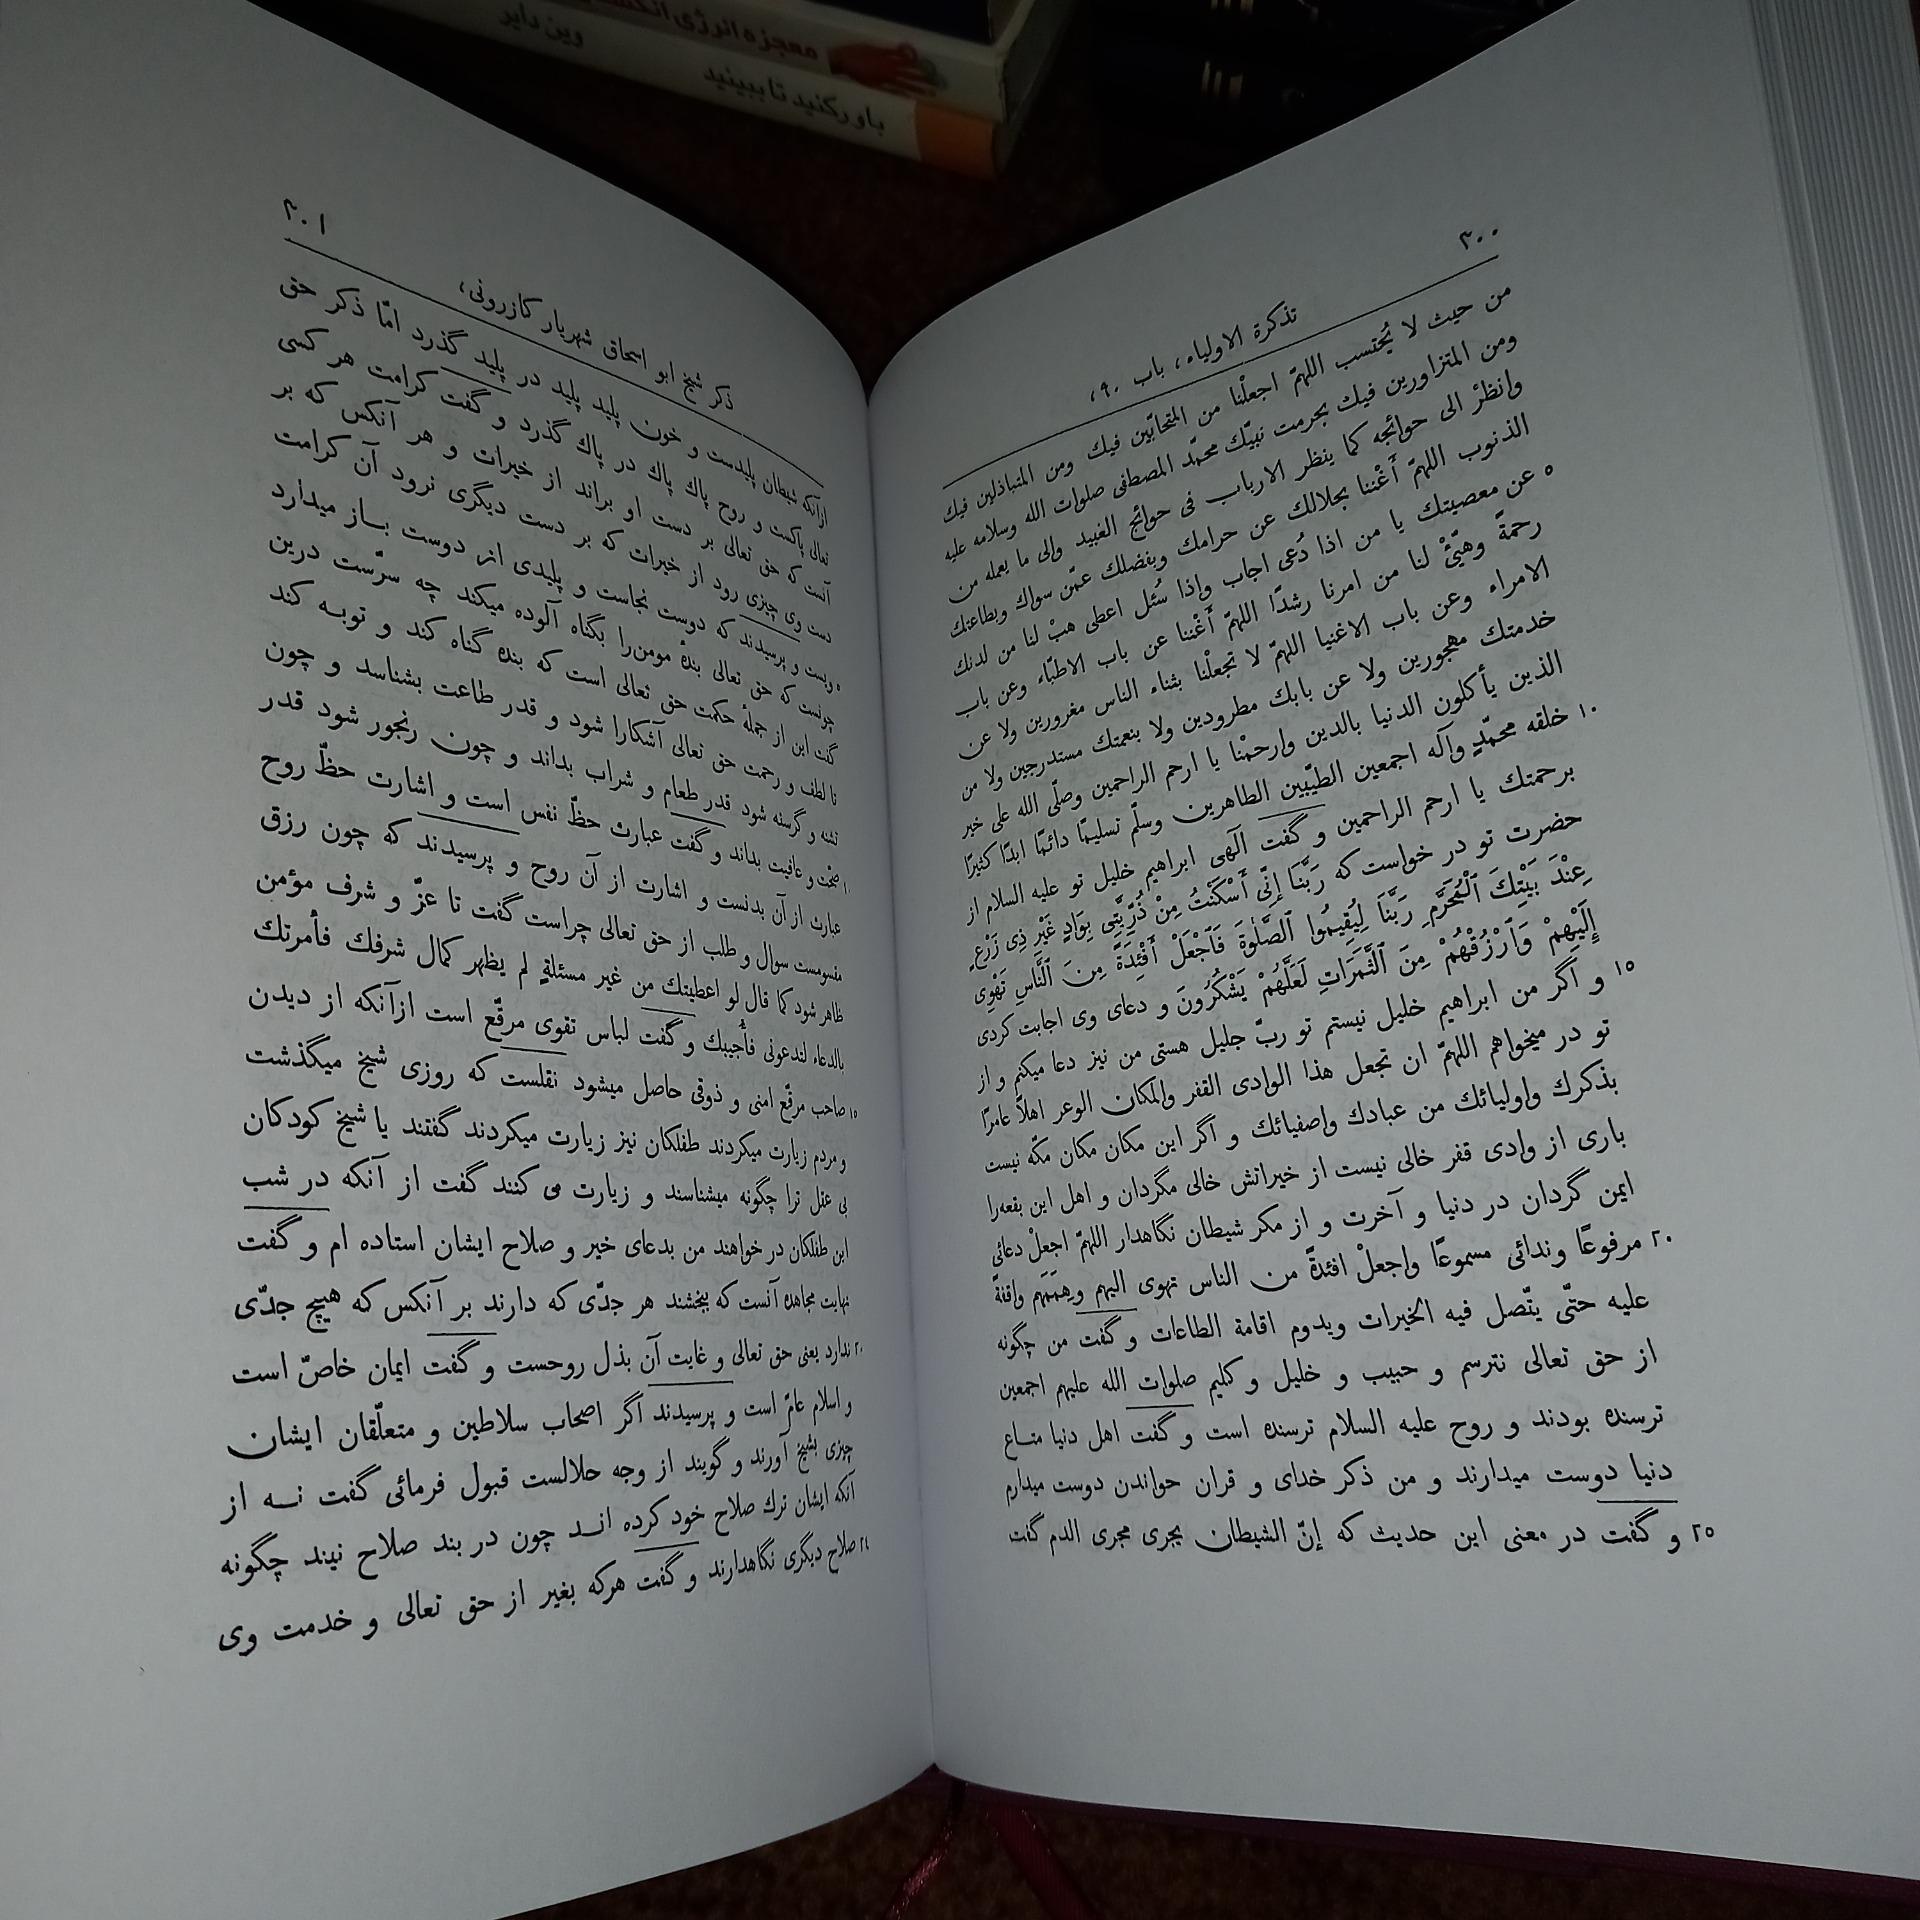 وین دایر
معجزه انرژی
باور کنید تا ببینید
٣٠٠
تذکرة الاولیاء، باب ٩٠،
من حیث لا یُحتسب اللهمّ اجعلْنا من المتحابّین فیك ومن المتباذلین فیك
ومن المتزاورین فیك بحرمت نبیّك محمّد المصطفی صلوات الله وسلامه علیه
وانظرْ الی حوائجه کما ینظر الارباب فی حوائج العبید والی ما یعمله من
الذنوب اللهمّ أَغْننا بحلالك عن حرامك وبفضلك عمّن سواك وبطاعتك
٥ عن معصیتك یا من اذا دُعی اجاب وإذا سُئل اعطی هبْ لنا من لدنك
رحمةً وهیّئْ لنا من امرنا رشدًا اللهمّ أَغْننا عن باب الاطبّاء وعن باب
الامراء وعن باب الاغنیا اللهمّ لا تجعلْنا بثناء الناس مغرورین ولا عن
خدمتك مهجورین ولا عن بابك مطرودین ولا بنعمتك مستدرجین ولا من
الذین یأکلون الدنیا بالدین وارحمْنا یا ارحم الراحمین وصلّی الله علی خیر
١٠ خلقه محمّدٍ وآله اجمعین الطیّبین الطاهرین وسلّم تسلیمًا دائمًا ابدًا کثیرًا
برحمتك یا ارحم الراحمین و گفت آلهی ابراهیم خلیل تو علیه السلام از
حضرت تو در خواست که رَبَّنَا إِنِّی أَسْکَنْتُ مِنْ ذُرِّیَّتِی بِوَادٍ غَیْرِ ذِی زَرْعٍ
عِنْدَ بَیْتِكَ ٱلْمُحَرَّمِ رَبَّنَا لِیُقِیمُوا ٱلصَّلٰوةَ فَٱجْعَلْ أَفْئِدَةً مِنَ ٱلنَّاسِ تَهْوِی
إِلَیْهِمْ وَٱرْزُقْهُمْ مِنَ ٱلثَّمَرَاتِ لَعَلَّهُمْ یَشْکُرُونَ و دعای وی اجابت کردی
١٥ و اگر من ابراهیم خلیل نیستم تو ربّ جلیل هستی من نیز دعا میکنم و از
تو در میخواهم اللهمّ ان تجعل هذا الوادی القفر والمکان الوعر اهلاً عامرًا
بذکرك واولیائك من عبادك واصفیائك و اگر این مکان مکان مکّه نیست
باری از وادی قفر خالی نیست از خیراتش خالی مگردان و اهل این بقعه‌را
ایمن گردان در دنیا و آخرت و از مکر شیطان نگاهدار اللهمّ اجعلْ دعائی
٢٠ مرفوعًا وندائی مسموعًا واجعلْ افئدةً من الناس تهوی الیهم وهِمَمَهم واقفةً
علیه حتّی یتّصل فیه الخیرات ویدوم اقامة الطاعات و گفت من چگونه
از حق تعالی نترسم و حبیب و خلیل و کلیم صلوات الله علیهم اجمعین
ترسنده بودند و روح علیه السلام ترسنده است و گفت اهل دنیا متاع
دنیا دوست میدارند و من ذکر خدای و قران حواندن دوست میدارم
٢٥ و گفت در معنی این حدیث که إنّ الشیطان یجری مجری الدم گفت
٣٠١
ذکر شیخ ابو اسحاق شهریار کازرونی،
ازآنکه شیطان پلیدست و خون پلید پلید در پلید گذرد امّا ذکر حق
تعالی پاکست و روح پاك پاك در پاك گذرد و گفت کرامت هر کسی
آنست که حق تعالی بر دست او براند از خیرات و هر آنکس که بر
دست وی چیزی رود از خیرات که بر دست دیگری نرود آن کرامت
٥ ویست و پرسیدند که دوست نجاست و پلیدی از دوست بـاز میدارد
چونست که حق تعالی بندهٔ مومن‌را بگناه آلوده میکند چه سرّست درین
گفت این از جملهٔ حکمت حق تعالی است که بنده گناه کند و توبـه کند
تا لطف و رحمت حق تعالی آشکارا شود و قدر طاعت بشناسد و چون
تشنه و گرسنه شود قدر طعام و شراب بداند و چون رنجور شود قدر
١٠ صحّت و عافیت بداند و گفت عبارت حظّ نفس است و اشارت حظّ روح
عبارت از آن بدنست و اشارت از آن روح و پرسیدند که چون رزق
مقسومست سوال و طلب از حق تعالی چراست گفت تا عزّ و شرف مؤمن
ظاهر شود کما قال لو اعطیتك من غیر مسئلةٍ لم یظهر کمال شرفك فأمرتك
بالدعاء لتدعونی فأُجیبك و گفت لباس تقوی مرقّع است ازآنکه از دیدن
١٥ صاحب مرقّع امنی و ذوقی حاصل میشود نقلست که روزی شیخ میگذشت
و مردم زیارت میکردند طفلکان نیز زیارت میکردند گفتند یا شیخ کودکان
بی عقل ترا چگونه میشناسند و زیارت می کنند گفت از آنکه در شب
این طفلکان در خواهند من بدعای خیر و صلاح ایشان استاده ام و گفت
نهایت مجاهده آنست که ببخشند هر جدّی که دارند بر آنکس که هیچ جدّی
٢٠ ندارد یعنی حق تعالی و غایت آن بذل روحست و گفت ایمان خاصّ است
و اسلام عامّ است و پرسیدند اگر اصحاب سلاطین و متعلّقان ایشان
چیزی بشیخ آورند و گویند از وجه حلالست قبول فرمائی گفت نـه از
آنکه ایشان ترك صلاح خود کرده انـد چون در بند صلاح نیند چگونه
٢٤ صلاح دیگری نگاهدارند و گفت هرکه بغیر از حق تعالی و خدمت وی